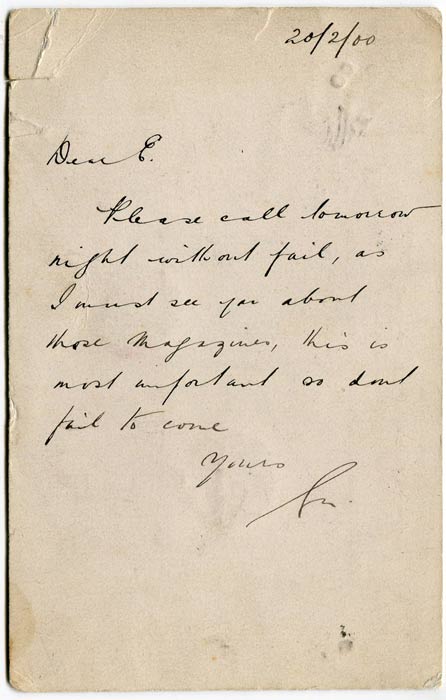 20/2/00
Dear E.
Please call tomorrow
night without fail, as
I must see you about
those Magazines, this is
most important so dont
fail to come
Yours